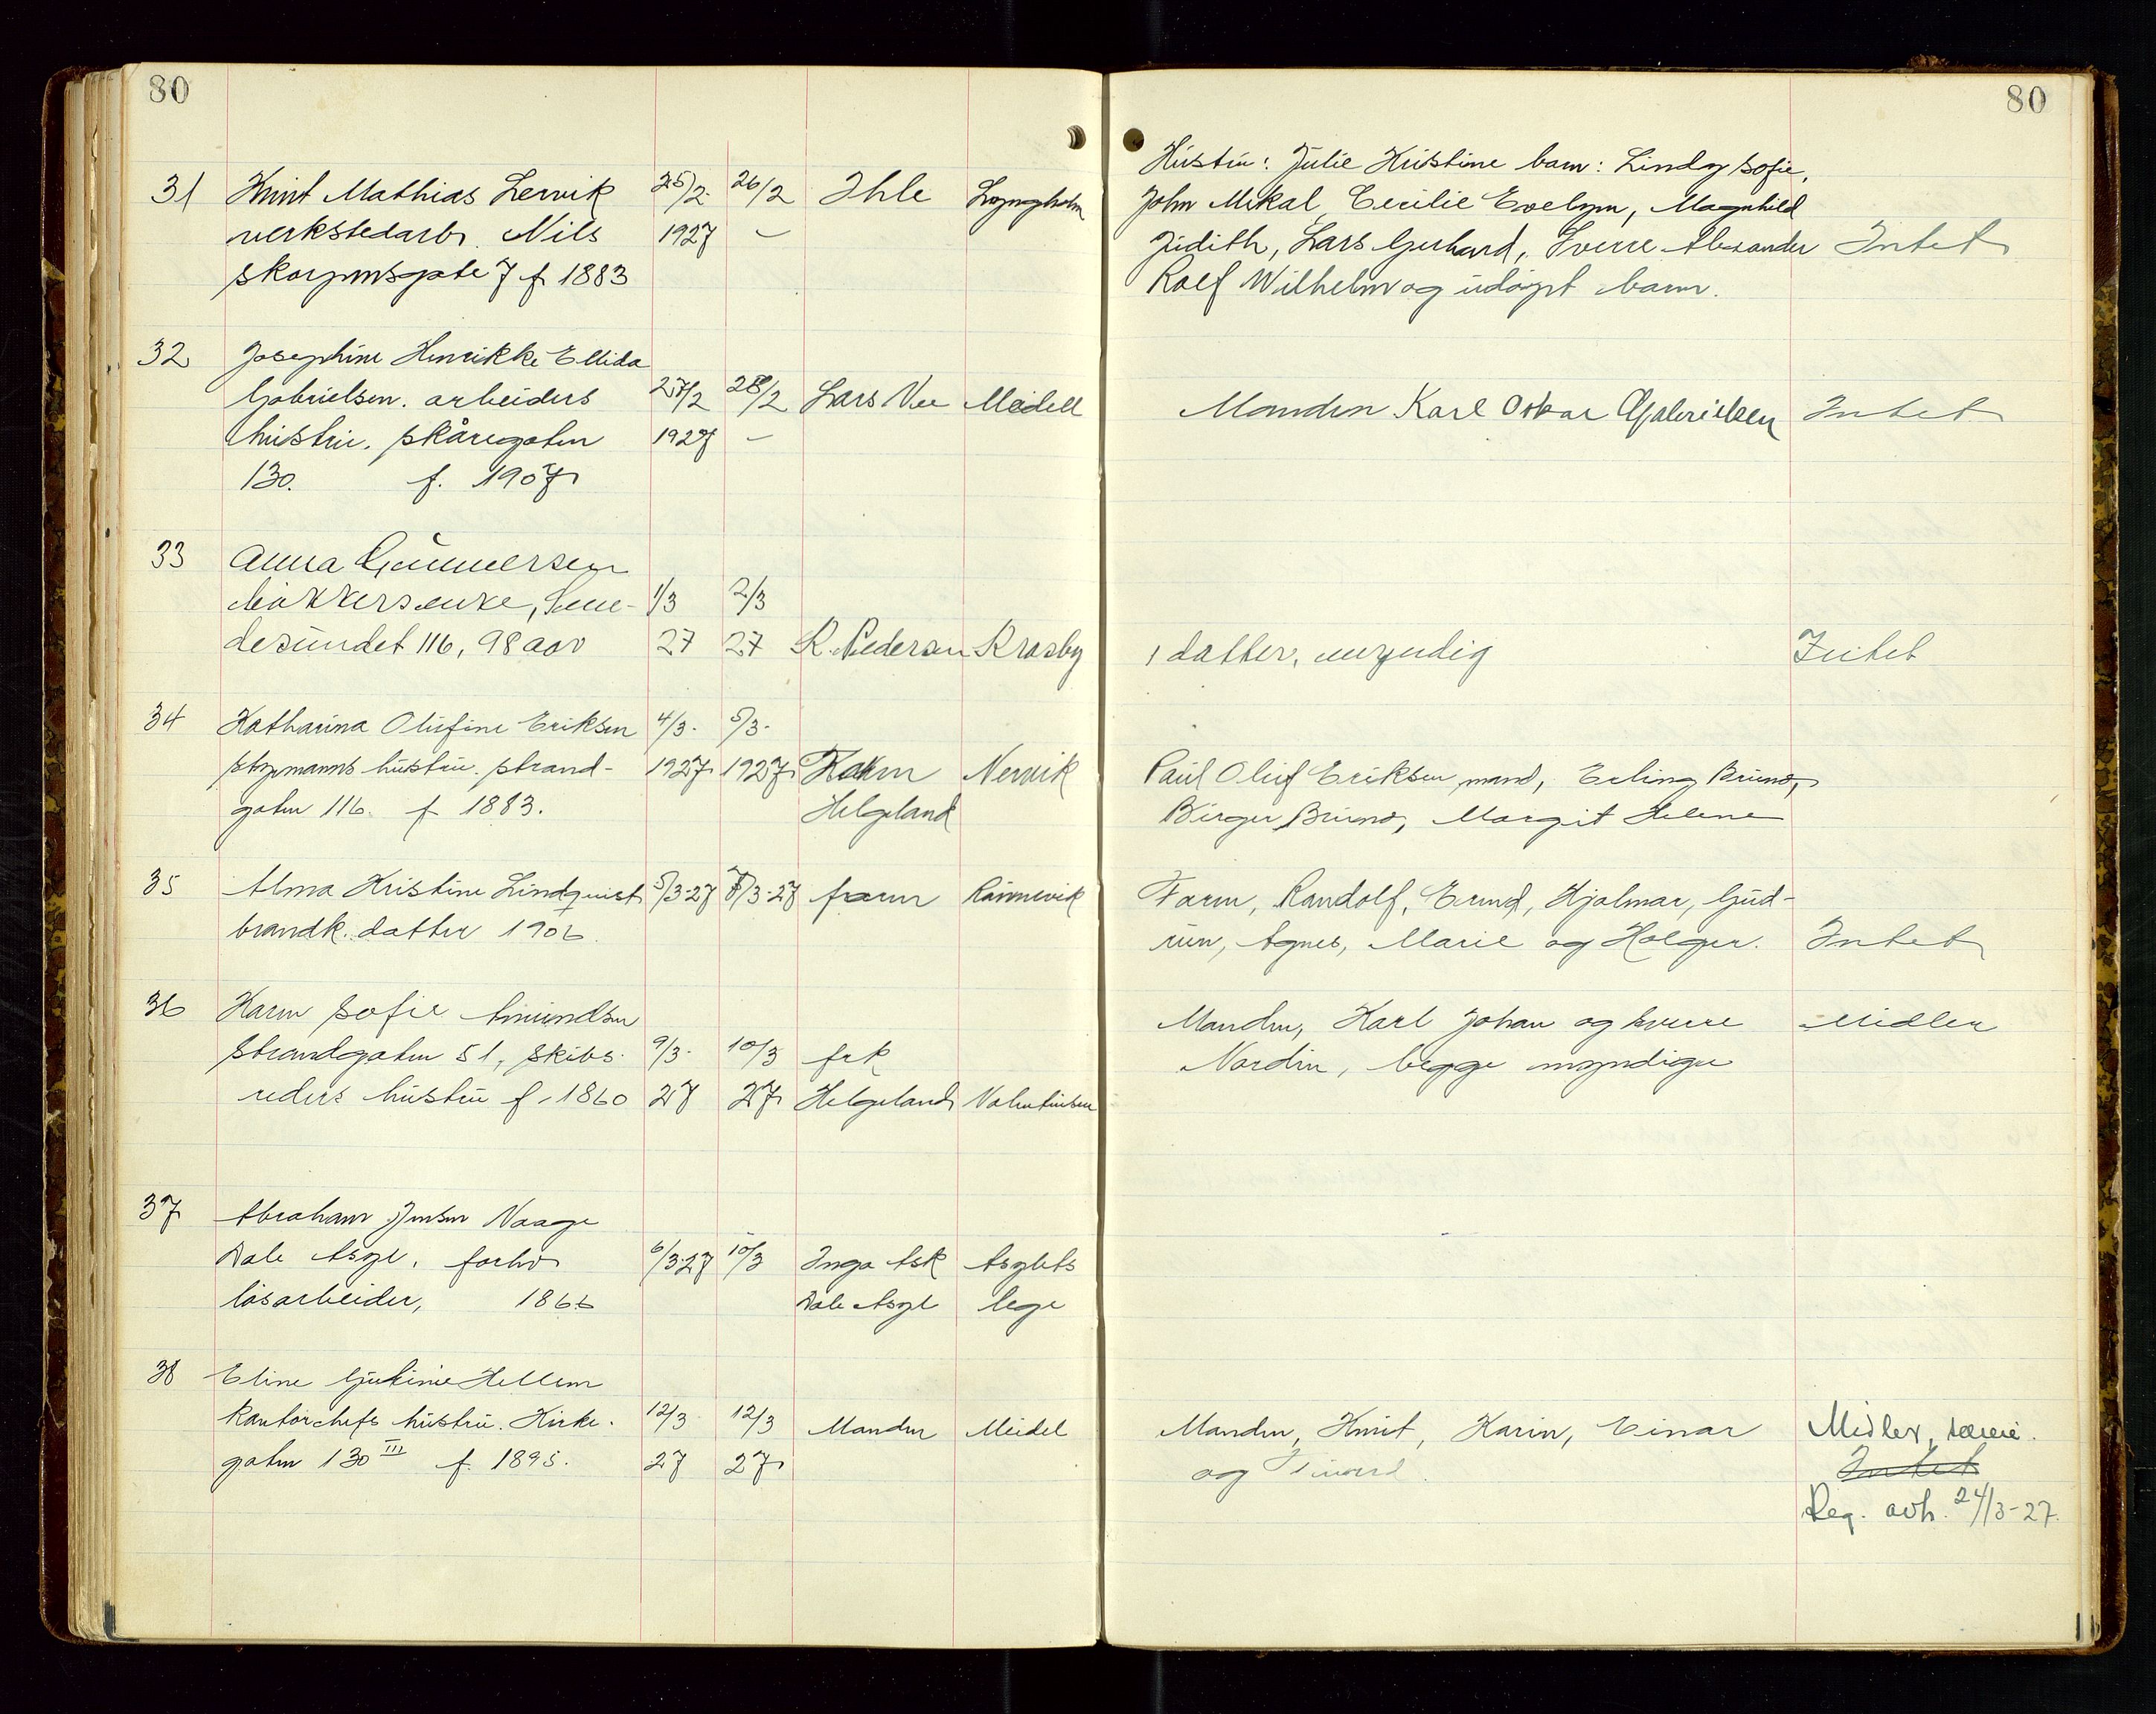 80
31 Knut Mathias Lervik 25/2 26/2 Ihle Lyngholm
verkstedarb. Nils 1927 –
Skorpens gate 7 f 1883
32 Josephine Henrikke Ellida
Gabrielsen. arbeiders 27/2 28/2 Lars Vee Meidell
hustru. Skåregaten 1927 –
130. f. 1907
33 Anna Gunnersen
bökkersenke, Sme- 1/3 2/3
desundet 116, 98 aar 27 27 R. Pedersen Krosby
34 Katharina Olufine Eriksen 4/3. 5/3.
styrmanns hustru. Strand- 1927 1927 Karen Nervik
gaten 116. f 1883. Helgeland
35 Alma Kristine Lindquist 5/3-27 7/3-27 faren Rönnevik
brandk. datter 1906
36 Karen Sofie Amundsen
Strandgaten 51, Skibs- 9/3. 10/3 frk
reders hustru f. 1860 27 27 Helgeland Valentinsen
37 Abraham Jensen Naage
Dale Asyl. forhv. 6/3-27 10/3 Inga Ask Asylets
lösarbeider, 1866 Dale Asyl lege
38 Eline Gurine Hellem
kontorchefs hustru. Kirke- 12/3 12/3 Manden Meidel
gaten 130 III f. 1895. 27 27
80
Hustru: Julie Kristine barn: Lindy Sofie,
John Mikal, Cecilie Evelyn, Magnhild
Judith, Lars Gerhard, Sverre Alexander Intet
Rolf Wilhelm og udöpt barn.
Manden Karl Oskar Gabrielsen Intet
1 datter, umyndig Intet
Paul Oluf Eriksen mand, Erling Bruno,
Birger Bruno, Margit Helene
Faren, Randolf, Erund, Hjalmar, Gud-
run, Agnes, Marie og Holger. Intet
Manden, Karl Johan og Sverre Midler
Nordin, begge myndige
Manden, Knut, Karin, Einar Midler,
og Intet
Reg. avh. 24/3-27.